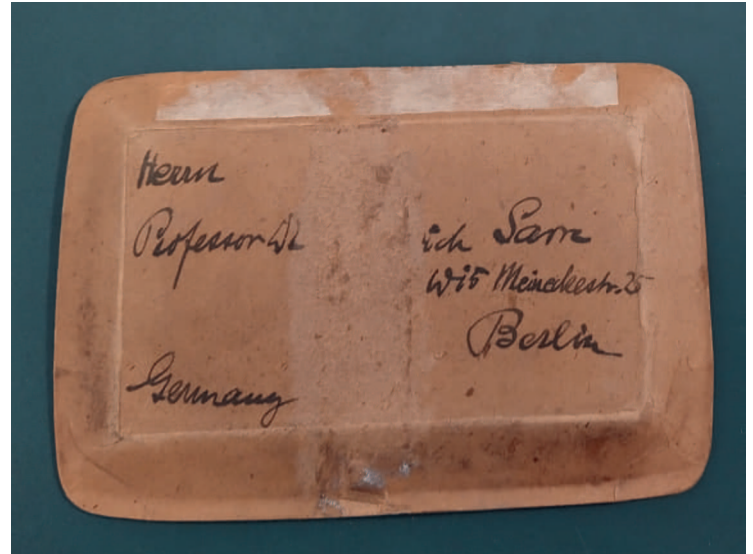 Herrn
Professor Dr
ich Sarre
W15 Meinekestr. 25
Berlin
Germany